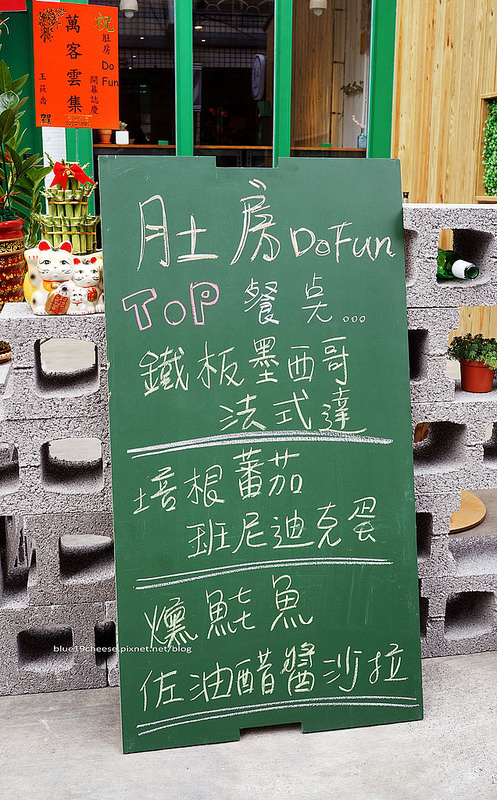 祝
肚房
Do
Fun
開幕誌慶
萬客雲集
王筱喬 賀
肚房 DoFun
TOP 餐点...
鐵板墨西哥
法式達
培根蕃茄
班尼迪克蛋
燻鮭魚
佐油醋醬沙拉
blue19cheese.pixnet.net/blog